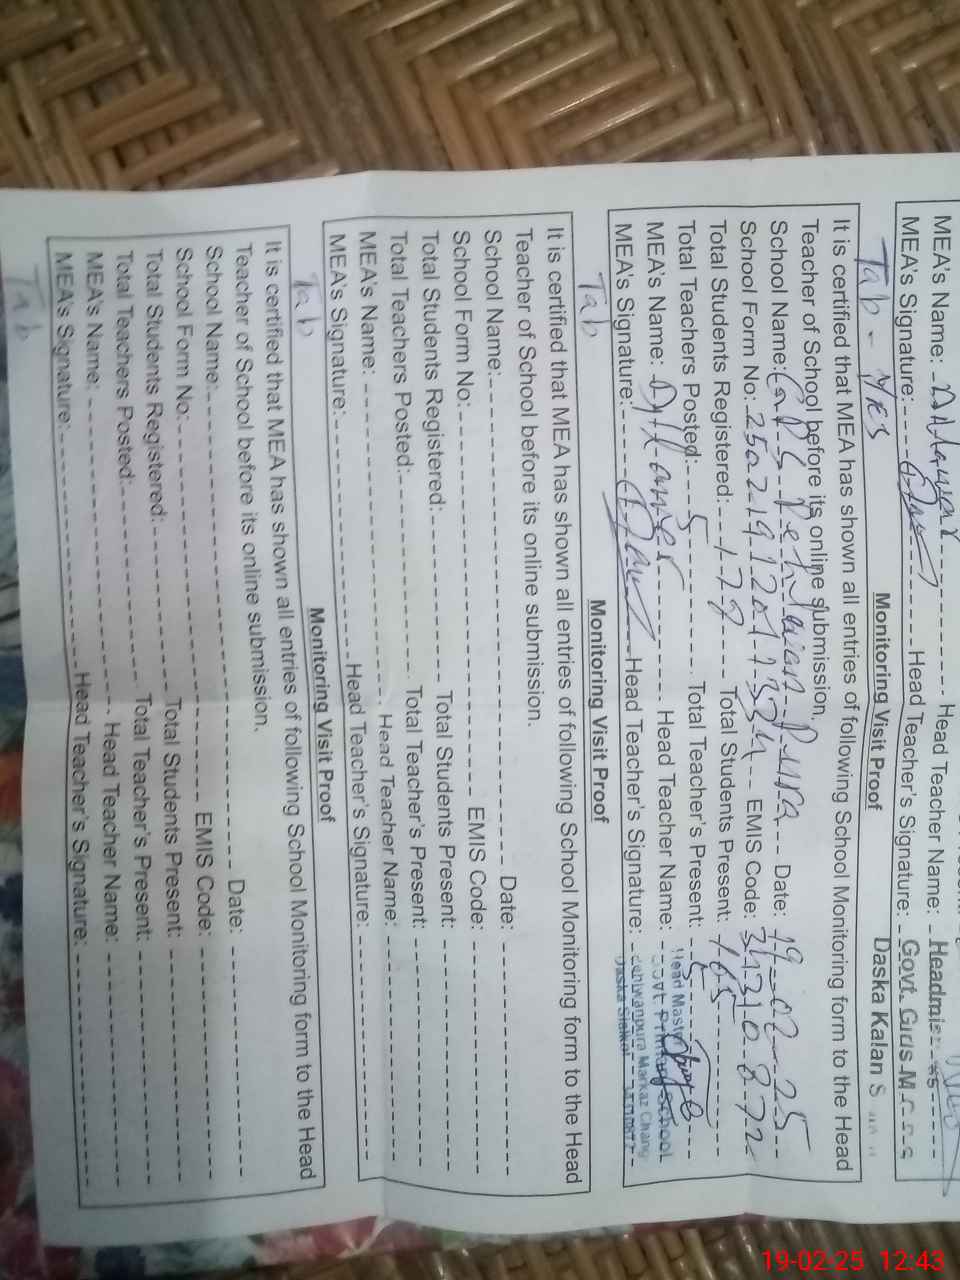 MEA's Name: Head Teacher Name: Headmis
MEA's Signature: Head Teacher's Signature: Govt. Girls M
Daska Kalan S
Tab - Yes
Monitoring Visit Proof
It is certified that MEA has shown all entries of following School Monitoring form to the Head
Teacher of School before its online submission.
School Name: Date: 19-02-25
School Form No: EMIS Code:
Total Students Registered: Total Students Present: 165
Total Teachers Posted: 5 Total Teacher's Present: 5
MEA's Name: Head Teacher Name:
MEA's Signature: Head Teacher's Signature:
Head Master
Govt. Primary School
Markaz
Daska Sialkot
Tab
Monitoring Visit Proof
It is certified that MEA has shown all entries of following School Monitoring form to the Head
Teacher of School before its online submission.
School Name: Date:
School Form No: EMIS Code:
Total Students Registered: Total Students Present:
Total Teachers Posted: Total Teacher's Present:
MEA's Name: Head Teacher Name:
MEA's Signature: Head Teacher's Signature:
Tab
Monitoring Visit Proof
It is certified that MEA has shown all entries of following School Monitoring form to the Head
Teacher of School before its online submission.
School Name: Date:
School Form No: EMIS Code:
Total Students Registered: Total Students Present:
Total Teachers Posted: Total Teacher's Present:
MEA's Name: Head Teacher Name:
MEA's Signature: Head Teacher's Signature:
Tab
19-02-25 12:43